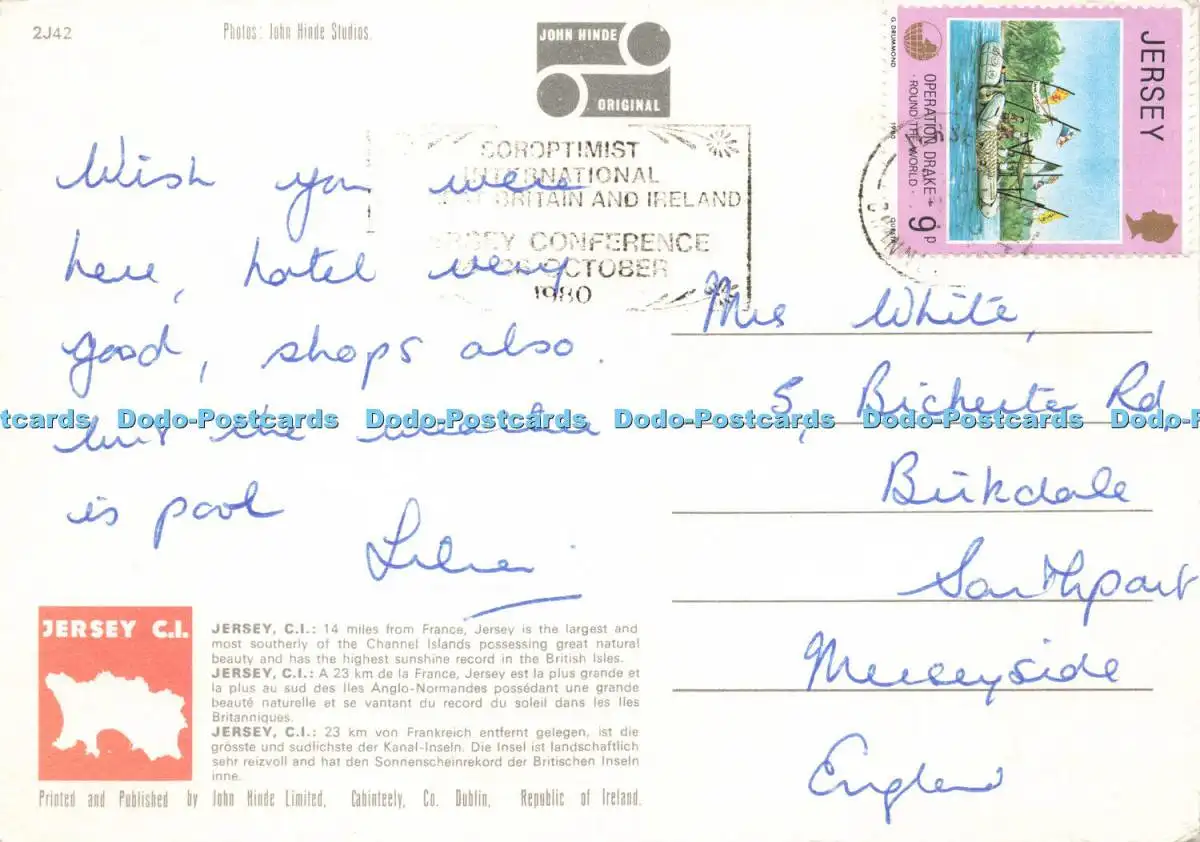 2J42
Photos: John Hinde Studios.
JOHN HINDE
ORIGINAL
JERSEY
OPERATION DRAKE
· ROUND THE WORLD ·
9p
G. DRUMMOND
1980
SOROPTIMIST
INTERNATIONAL
BRITAIN AND IRELAND
JERSEY CONFERENCE
OCTOBER
1980
Wish you were
here, hotel very
good, shops also.
but the weather
is poor
Mrs White,
5, Bichester Rd,
Birkdale
Southport
Merseyside
England
Dodo-Postcards Dodo-Postcards Dodo-Postcards Dodo-Postcards
JERSEY C.I.
JERSEY, C.I.: 14 miles from France, Jersey is the largest and
most southerly of the Channel Islands possessing great natural
beauty and has the highest sunshine record in the British Isles.
JERSEY, C.I.: A 23 km de la France, Jersey est la plus grande et
la plus au sud des Iles Anglo-Normandes possédant une grande
beauté naturelle et se vantant du record du soleil dans les Iles
Britanniques.
JERSEY, C.I.: 23 km von Frankreich entfernt gelegen, ist die
grösste und sudlichste der Kanal-Inseln. Die Insel ist landschaftlich
sehr reizvoll and hat den Sonnenscheinrekord der Britischen Inseln
inne.
Printed and Published by John Hinde Limited, Cabinteely, Co. Dublin, Republic of Ireland.